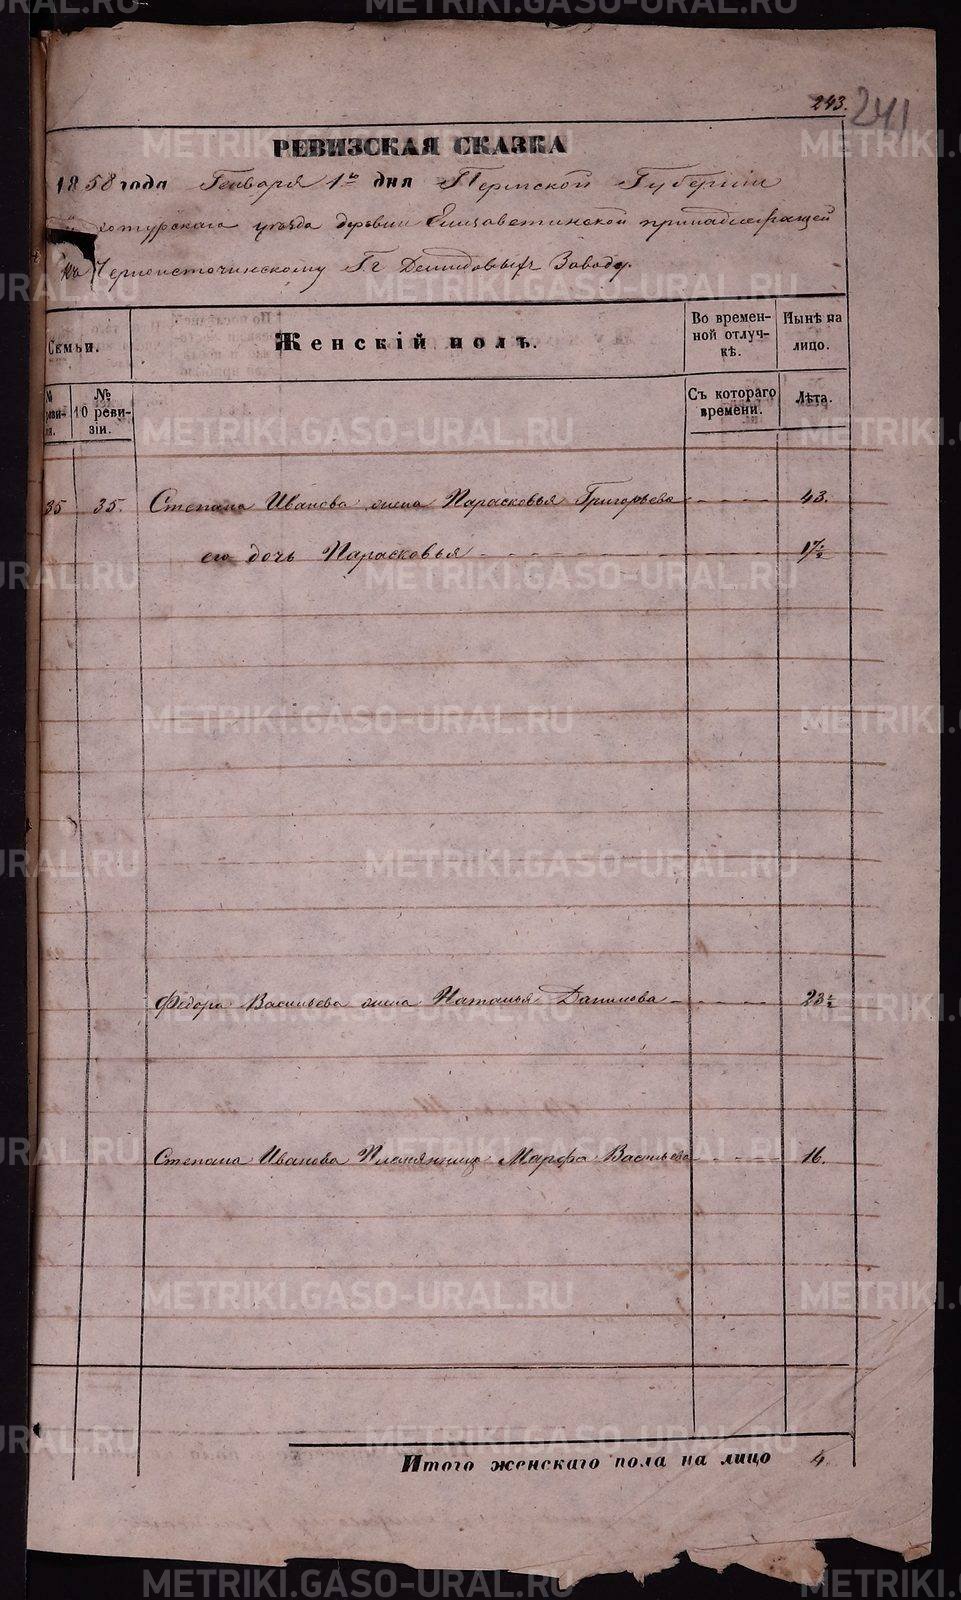 243.
241
РЕВИЗСКАЯ СКАЗКА
1858 года Генваря 1го дня Пермской Губернии
хотурскаго уезда деревни Елизаветинской принадлежащей
къ Черноисточинскому Гг Демидовыхъ Заводу.
Семьи.
Женскій полъ.
Во временной отлучкѣ.
Нынѣ на лицо.
№ реви-зіи.
№ 10 реви-зіи.
Съ котораго времени.
Лѣта.
35 35. Степана Иванова жена Парасковья Григорьева 43.
его дочь Парасковья 17½
Федора Васильева жена Наталья Данилова 23½
Степана Иванова Племянница Марфа Васильева 16.
Итого женскаго пола на лицо 4.
METRIKI.GASO-URAL.RU